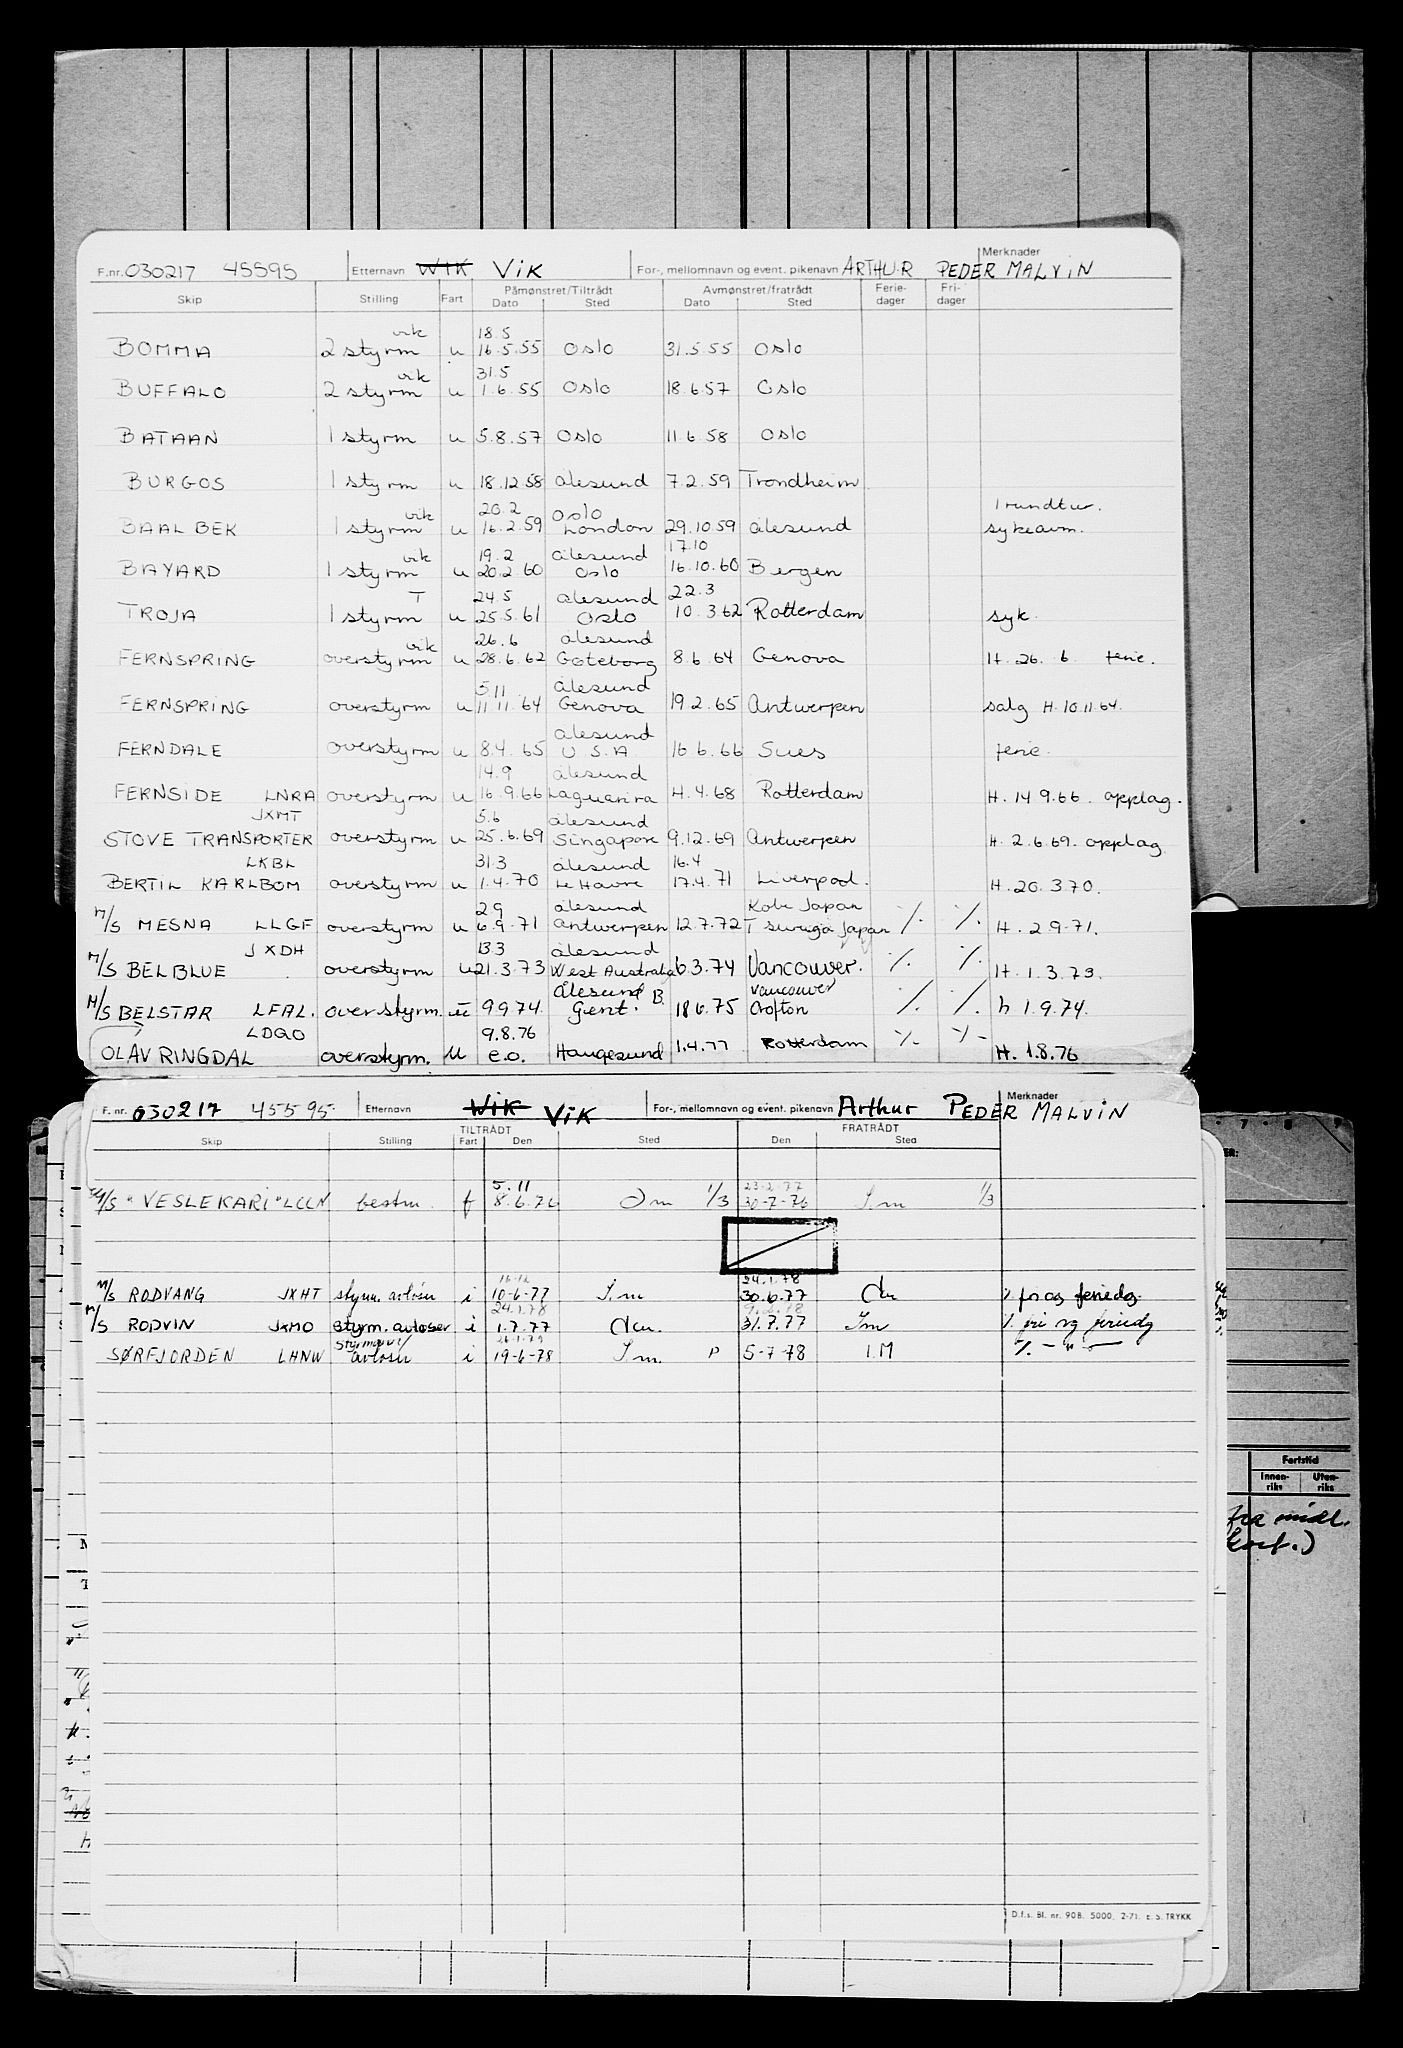 F.nr. 030217 45595 Etternavn WIK VIK For-, mellomnavn og event. pikenavn ARTHUR PEDER MALVIN Merknader
Skip Stilling Fart Påmønstret/Tiltrådt Dato Sted Avmønstret/fratrådt Dato Sted Ferie-dager Fri-dager
vik 18.5
BOMMA 2 styrm u 16.5.55 Oslo 31.5.55 Oslo
vik 31.5
BUFFALO 2 styrm u 1.6.55 Oslo 18.6.57 Oslo
BATAAN 1 styrm u 5.8.57 Oslo 11.6.58 Oslo
BURGOS 1 styrm u 18.12.58 Ålesund 7.2.59 Trondheim
vik 20.2 Oslo 1 rundtur.
BAALBEK 1 styrm u 16.2.59 London 29.10.59 Ålesund sykeavm.
vik 19.2 Ålesund 17.10
BAYARD 1 styrm u 20.2.60 Oslo 16.10.60 Bergen
T 24.5 Ålesund 22.3
TROJA 1 styrm u 25.5.61 Oslo 10.3.62 Rotterdam syk.
vik 26.6 Ålesund
FERNSPRING overstyrm u 28.6.62 Göteborg 8.6.64 Genova H. 26. 6 ferie.
5.11 Ålesund
FERNSPRING overstyrm u 11.11.64 Genova 19.2.65 Antwerpen salg H.10.11.64.
Ålesund
FERNDALE overstyrm u 8.4.65 U.S.A 16.6.66 Sues ferie.
14.9 Ålesund
FERNSIDE LNRA overstyrm u 16.9.66 Laguarira 4.4.68 Rotterdam H. 14 9.66. opplag.
JXMT 5.6 Ålesund
STOVE TRANSPORTER overstyrm u 25.6.69 Singapore 9.12.69 Antwerpen H. 2.6.69. opplag
LKBL 31.3 Ålesund 16.4
BERTIL KARLBOM overstyrm u 1.4.70 Le Havre 17.4.71 Liverpool. H. 20.3.70.
2.9 Ålesund Kobe Japan
M/S MESNA LLGF overstyrm u 6.9.71 Antwerpen 12.7.72 Tsuruga Japan ./. ./. H. 2.9.71.
JXDH 13.3 Ålesund
M/S BELBLUE overstyrm u 21.3.73 West Australia 6.3.74 Vancouver. ./. ./. H. 1.3.73.
Ålesund B. Vancouver
M/S BELSTAR LFAL. overstyrm. u 9.9.74 Gent. 18 6.75 Crofton ./. ./. h 1.9.74.
LDQO 9.8.76
OLAV RINGDAL overstyrm. U e.o. Haugesund 1.4.77 Rotterdam ./. ./. H. 1.8.76
F. nr. 030217 45595 Etternavn WIK VIK For-, mellomnavn og event. pikenavn Arthur PEDER MALVIN Merknader
Skip Stilling TILTRÅDT Fart Den Sted FRATRÅDT Den Sted
5.11 23.2.77
M/S "VESLEKARI" LCLN bestm. f 8.6.76 Dm 1/3 30-7-76 I.m 1/3
16.12 24.1.78
M/S RODVANG JXHT styrm. avløser i 10-6-77 I.m 30.6.77 Om ./. fri og feriedg.
24.1.78
M/S RODVIN JXMO styrm. avløser i 1.7.77 Om. 31.7.77 Im ./. fri og feriedg
Styrmanns/ 26.1.79
SØRFJORDEN LHNW avløser i 19-6-78 I.m. P 5-7-78 I.M ./. - " -
D.f.s. Bl. nr. 90B. 5000, 2-71. E.S. TRYKK
7 8 9
ER:
Fartstid
Innen-riks Uten-riks
fra midl.
kort.)